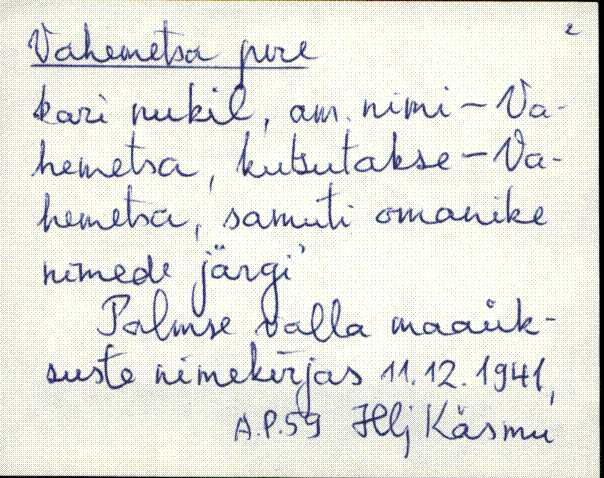 2
Vahemetsa pere
kari nukil, am. nimi – Va-
hemetsa, kutsutakse – Va-
hemetsa, samuti omanike
nimede järgi
Palmse valla maaük-
suste nimekirjas 11.12.1941,
A.P.59 Hlj Käsmu